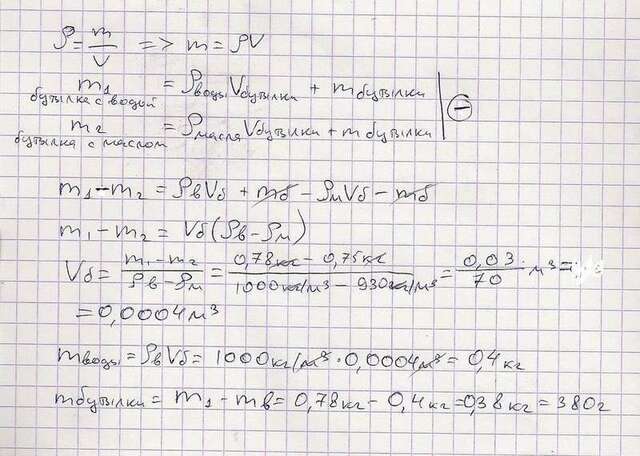 ρ = m/V => m = ρV
m₁ бутылка с водой = ρводы Vбутылки + mбутылки
m₂ бутылка с маслом = ρмасла Vбутылки + mбутылки | ⊖
m₁ − m₂ = ρвVб + mб − ρмVб − mб
m₁ − m₂ = Vб(ρв − ρм)
Vб = (m₁ − m₂)/(ρв − ρм) = (0,78кг − 0,75кг)/(1000кг/м³ − 930кг/м³) = 0,03/70 · м³ =
= 0,0004 м³
mводы = ρвVб = 1000кг/м³ · 0,0004м³ = 0,4 кг
mбутылки = m₁ − mв = 0,78кг − 0,4кг = 0,38кг = 380г